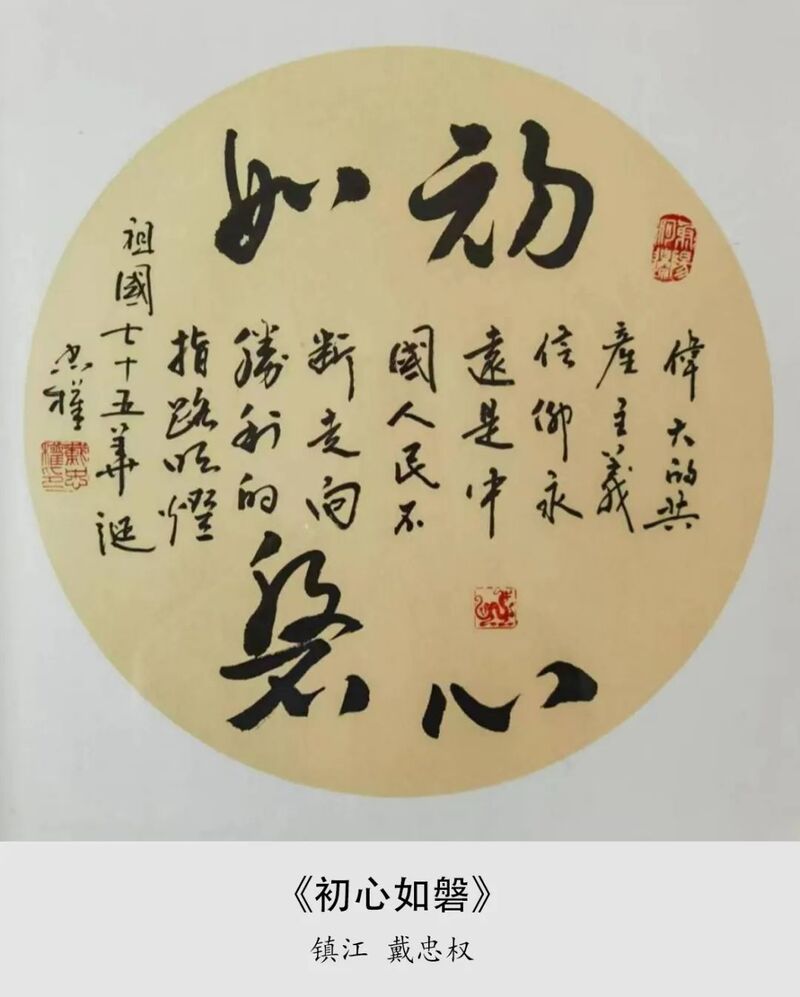 初心
如磐
偉大的共
産主義
信仰永
遠是中
國人民不
斷走向
勝利的
指路明燈
祖國七十五華誕
忠權
戴忠權印
《初心如磐》
镇江 戴忠权